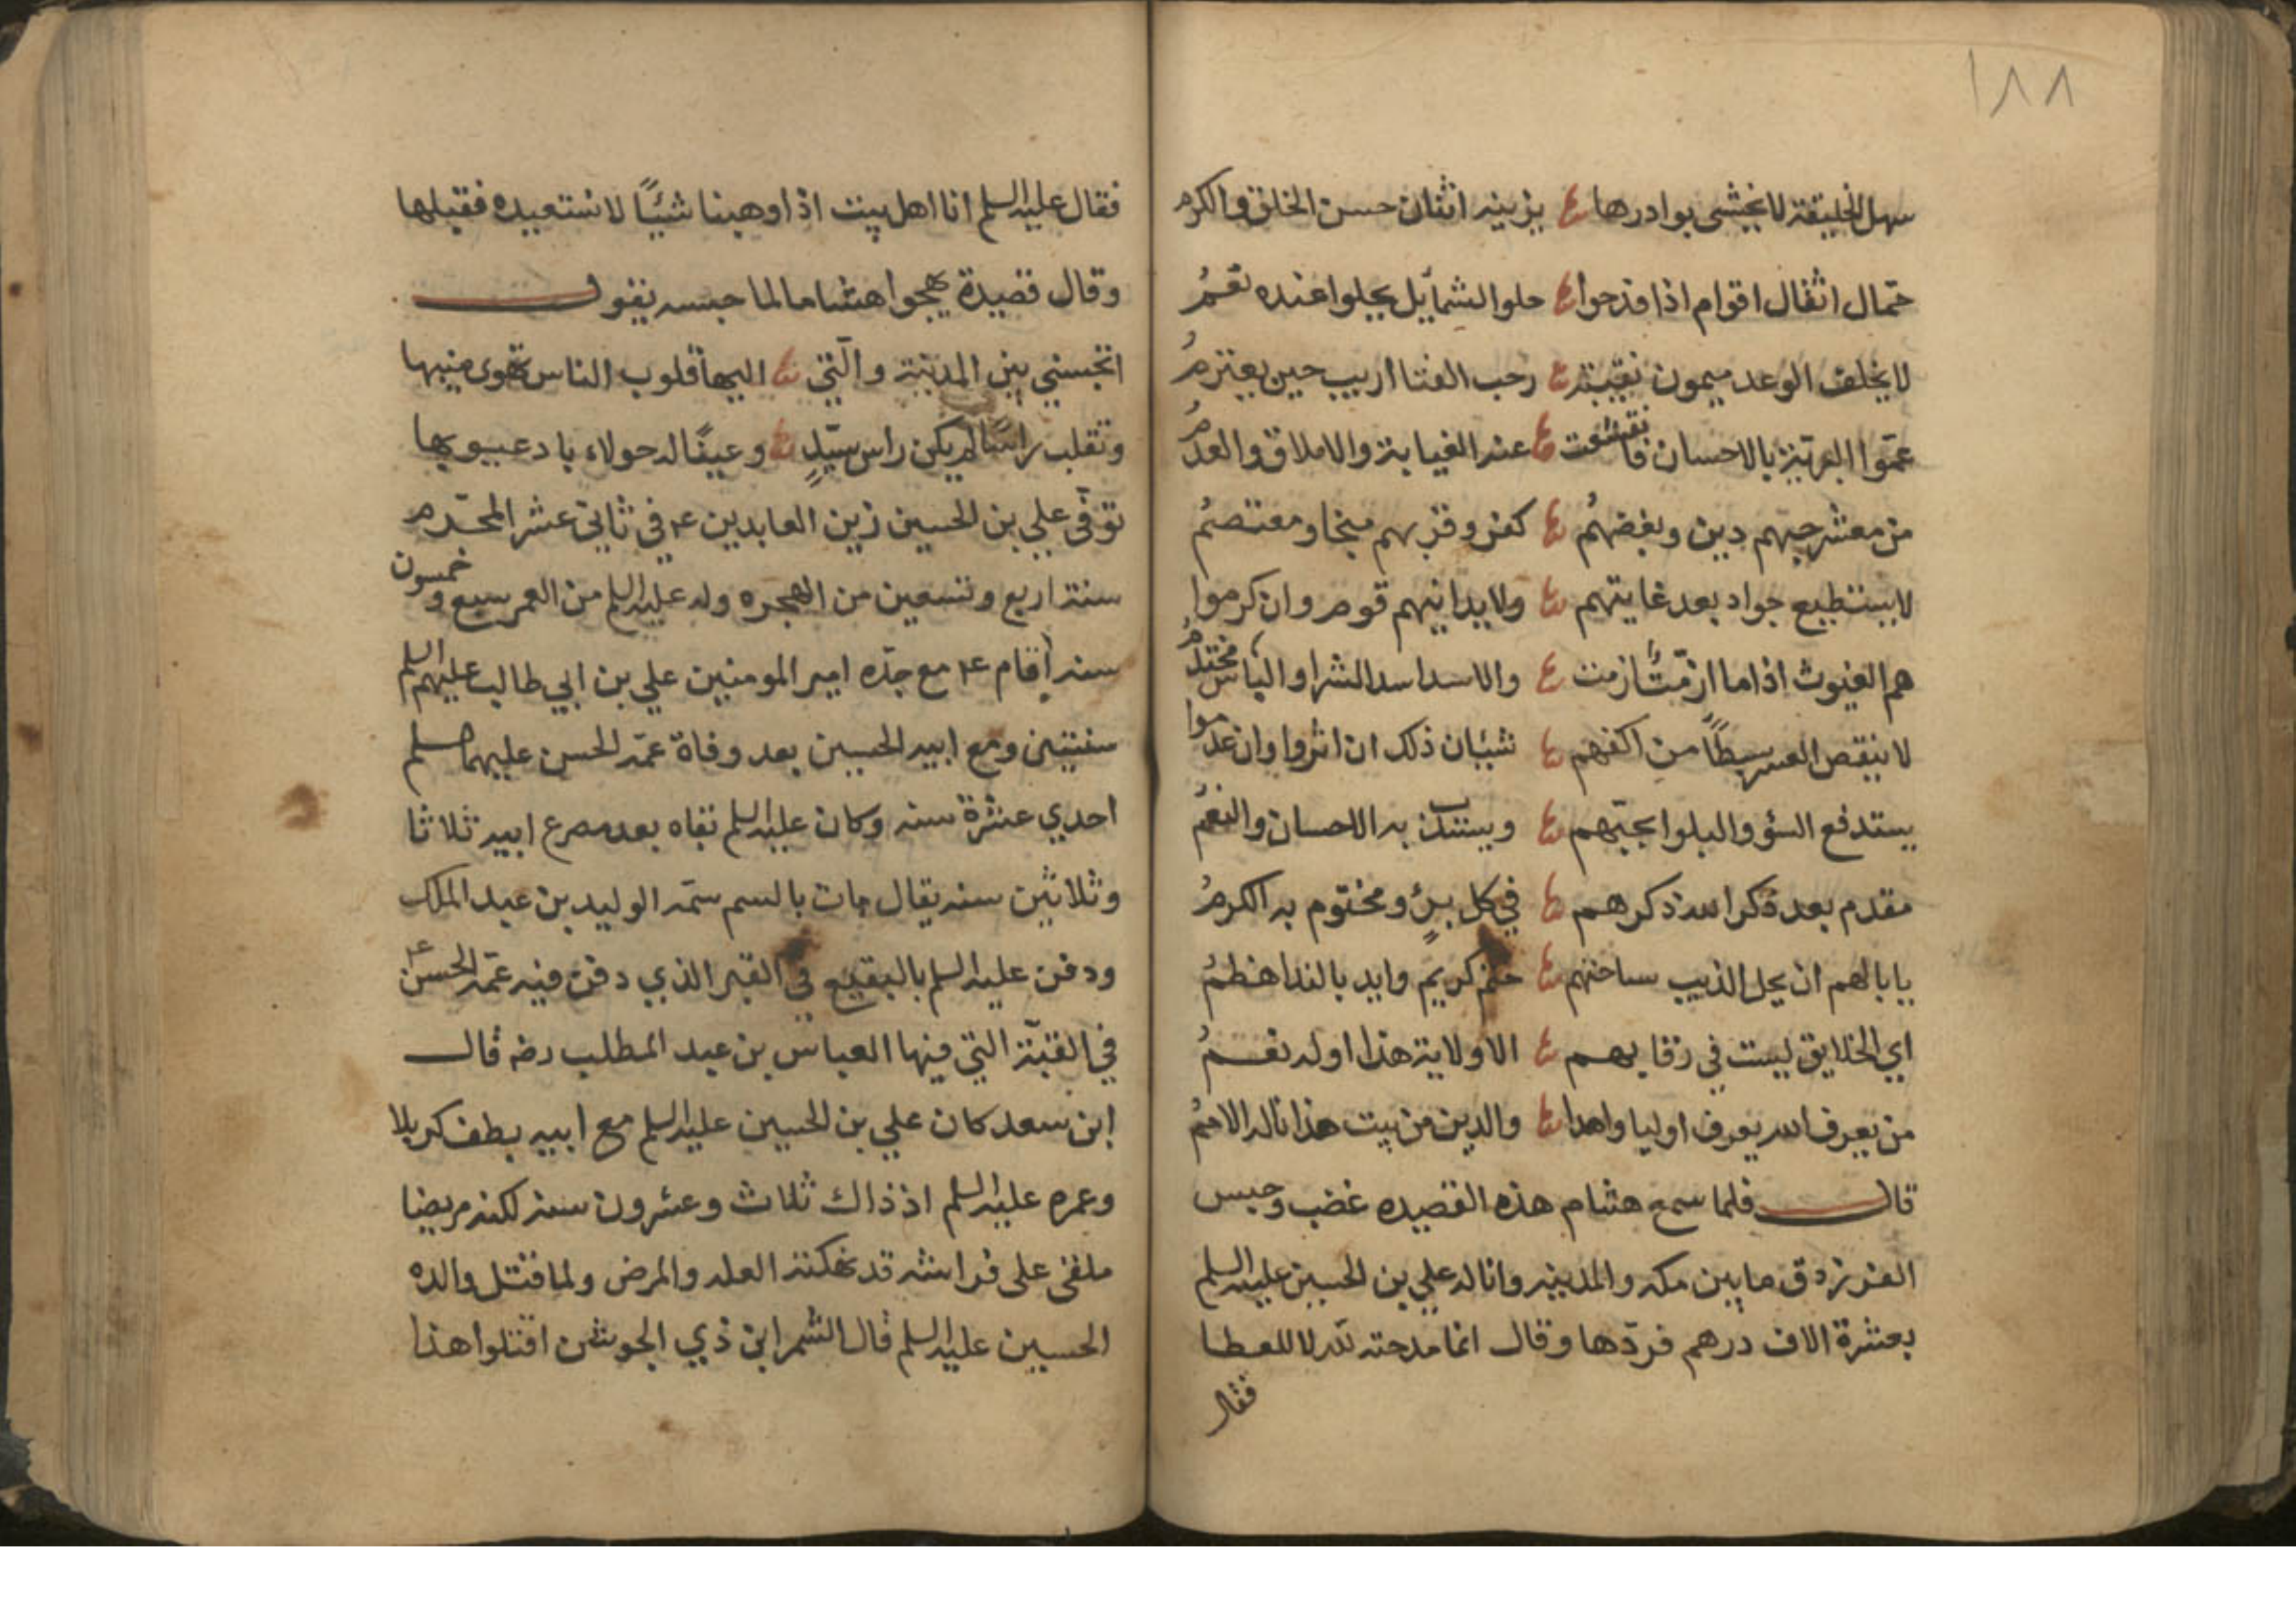 ١٨٨
سهل الخليقة لا يخشى بوادرها ع يزينه اثنان حسن الخلق والكرم
حمال اثقال اقوام اذا فدحوا ع حلو الشمايل يحلوا عنده نعمُ
لا يخلف الوعد ميمون نقيبته ع رحب الفنا اريب حين يعتزمُ
عموا البرية بالاحسان فانقشعت ع عنه الغيابة والاملاق والعدمُ
من معشر حبهم دين وبغضهُمُ ع كفر وقربهم منجا ومعتصمُ
لا يستطيع جواد بعد غايتهم ع ولا يدانيهم قوم وان كرموا
هم الغيوث اذا ما ازمة ازمت ع والاسد اسد الشرا والباس محتدمُ
لا ينقص العسر بسطًا من اكفهم ع شيئان ذلك ان اثروا وان عدموا
يستدفع السؤ والبلوا بحبّهم ع ويستدب به الاحسان والنعمُ
مقدم بعد ذكر الله ذكرهم ع في كل برٍ ومختوم به الكرمُ
يابا لهم ان يحل الذيب ساحتهم ع خيم كريم وايد بالندا هظمُ
اي الخلايق ليست في رقابهم ع الاولاية هذا او له نعمُ
من يعرف الله يعرف اوليا واهدا ع والدين من بيت هذا ناله الاممُ
قال فلما سمع هشام هذه القصيده غضب وحبس
الفرزدق ما بين مكه والمدينه وانا له علي بن الحسين عليه السلم
بعشرة الاف درهم فردّها وقال انما مدحته لله لا للعطا
فقال
فقال عليه السلم انا اهل بيت اذا وهبنا شيئًا لا نستعيده فقبلها
وقال قصيدة يهجوا هشاما لما حبسه يقول
اتحبسني بين المدينة والّتي ع اليها قلوب الناس تهوى منيبها
وتقلب راسًا لم يكن راس سيّدٍ ع وعينًا له حولاء باد عيوبها
توفّى علي بن الحسين زين العابدين ع في ثاني عشر المحرّم
سنة اربع وتسعين من الهجره وله عليه السلم من العمر سبع وخمسون
سنه اقام ع مع جدّه امير المومنين علي بن ابي طالب عليهم السلم
سنتين ومع ابيه الحسين بعد وفاة عمّه الحسن عليهما سلم
احدي عشرة سنه وكان عليه السلم بقاه بعد مصرع ابيه ثلاثا
وثلاثين سنه يقال مات بالسم سمّه الوليد بن عبد الملك
ودفن عليه السلم بالبقيع في القبر الذي دفن فيه عمّه الحسن ع
في القبّة التي فيها العباس بن عبد المطلب رضه قال
ابن سعد كان علي بن الحسين عليه السلم مع ابيه بطف كربلا
وعمره عليه السلم اذ ذاك ثلاث وعشرون سنه لكنه مريضا
ملقى على فراشه قد نهكته العله والمرض ولما قتل والده
الحسين عليه السلم قال الشمر ابن ذي الجوشن اقتلوا هذا